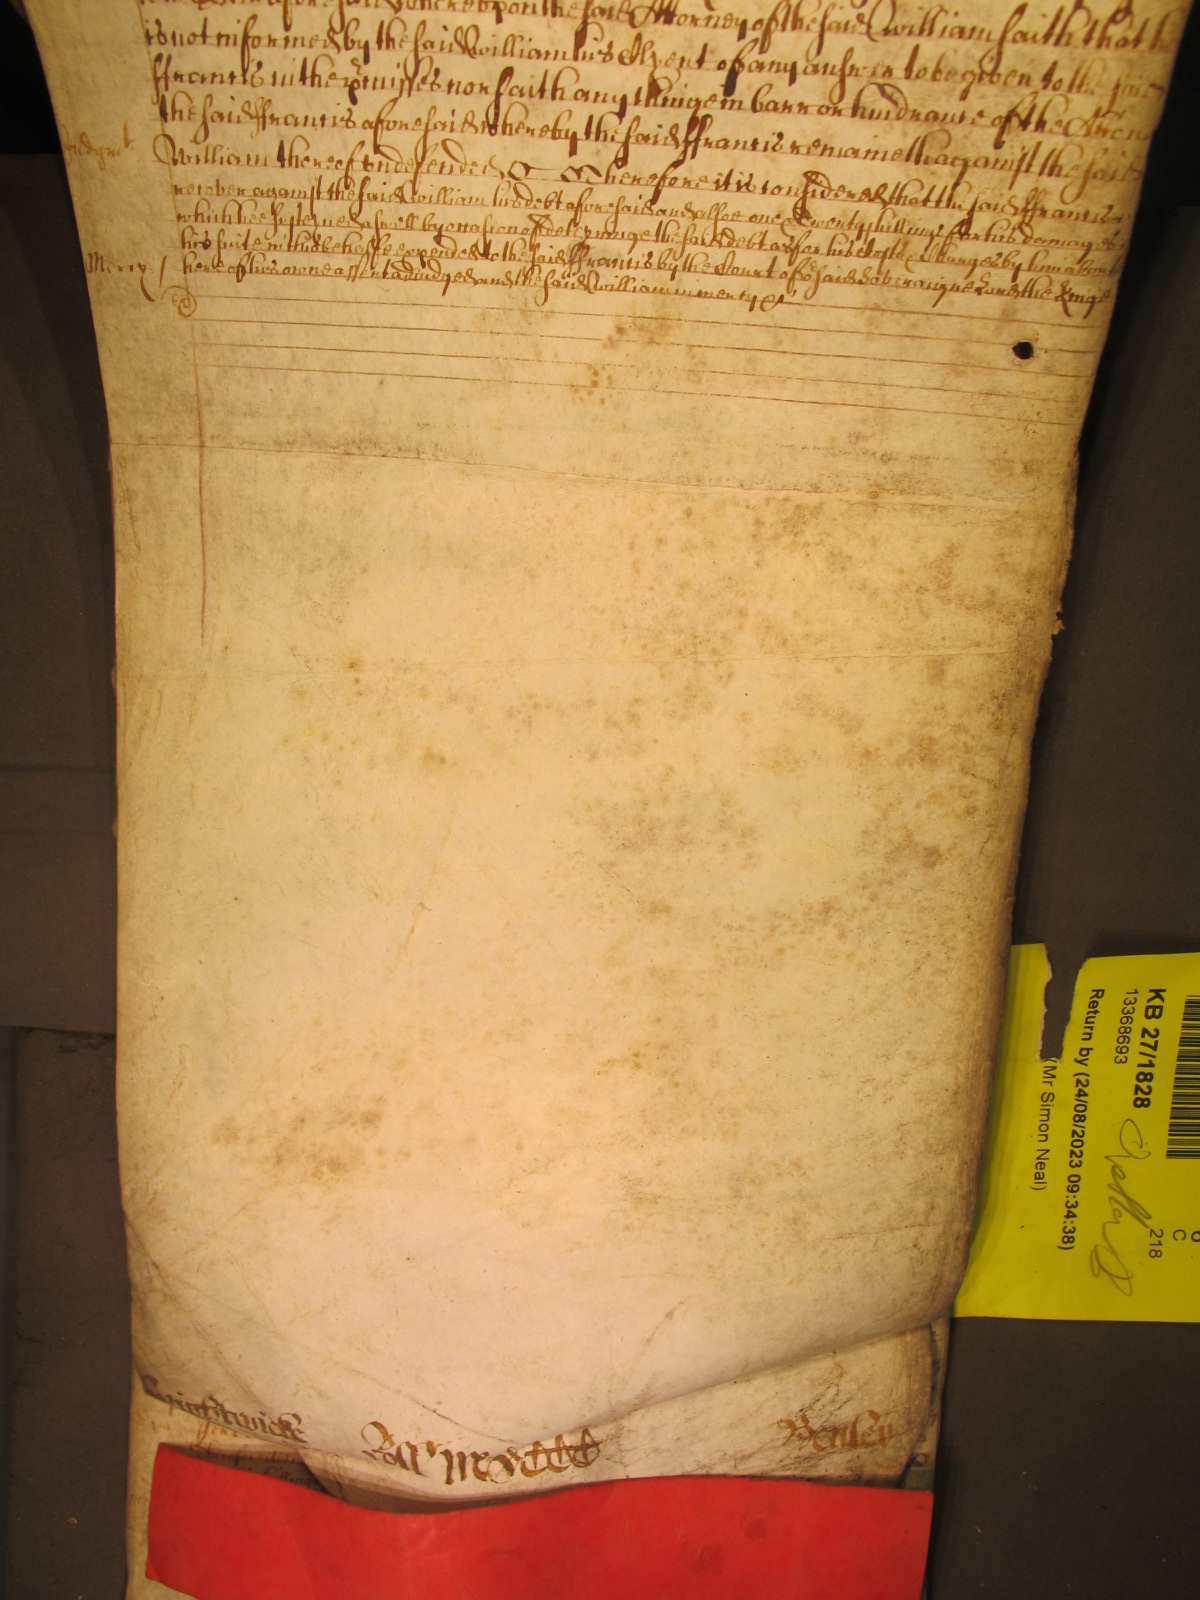 whereupon the said Attorney of the said William saith that he
is not informed by the said William his Clyent of any answer to be given to the said
ffrancis in the p'misses nor saith any thinge in barr or hindrance of the Accon
the said ffrancis aforesaid whereby the said ffrancis remaineth against the said
Judgmt
William thereof undefended Therefore it is considered that the said ffrancis
recover against the said William his debt aforesaid and alsoe one & twenty shillings for his damages
which hee susteyned aswell by occasion of deteyninge the said debt as for his costs & Charges by him about
his suite in this behalfe expended to the said ffrancis by the Court of o' said Soveraigne Lord the Kinge
Mercy /
here of his owne assent adiudged and the said William in mercy &c
KB 27/1828
13368693
Return by (24/08/2023 09:34:38)
(Mr Simon Neal)
218
C
6
Ro
Henley